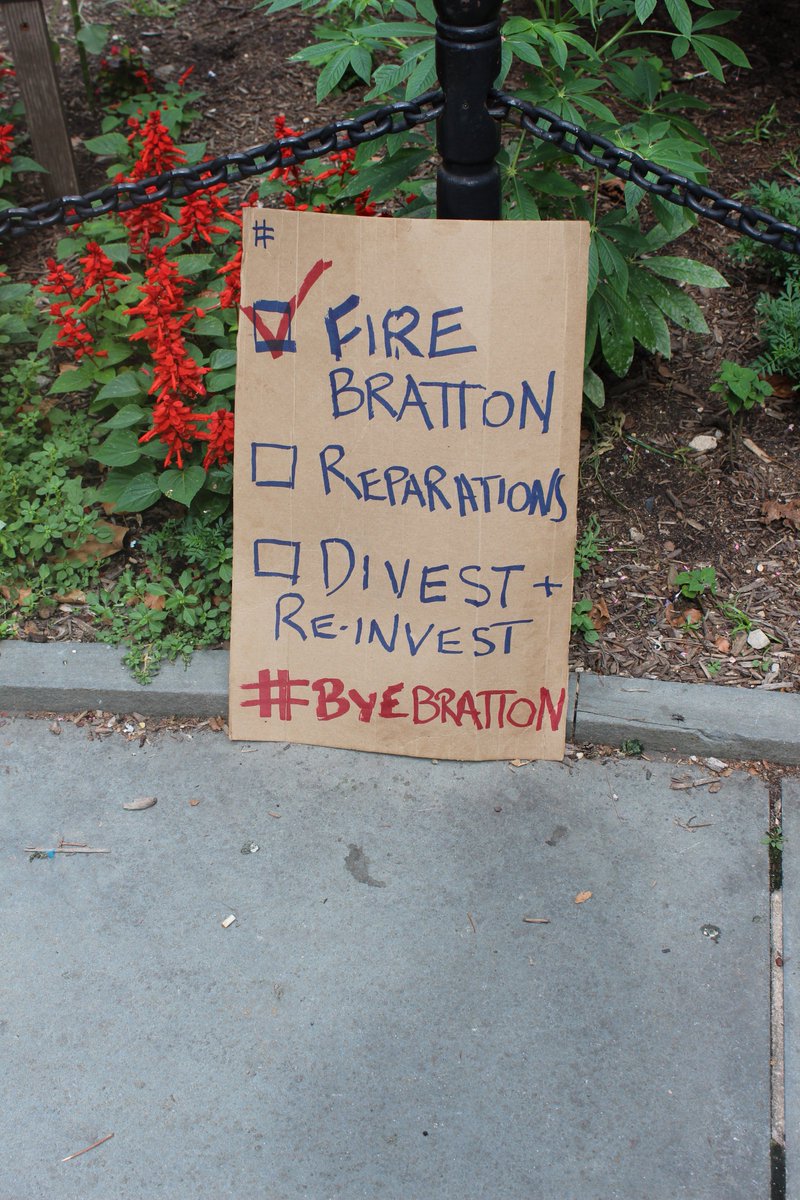 #
FIRE
BRATTON
REPARATIONS
DIVEST +
RE-INVEST
#BYEBRATTON